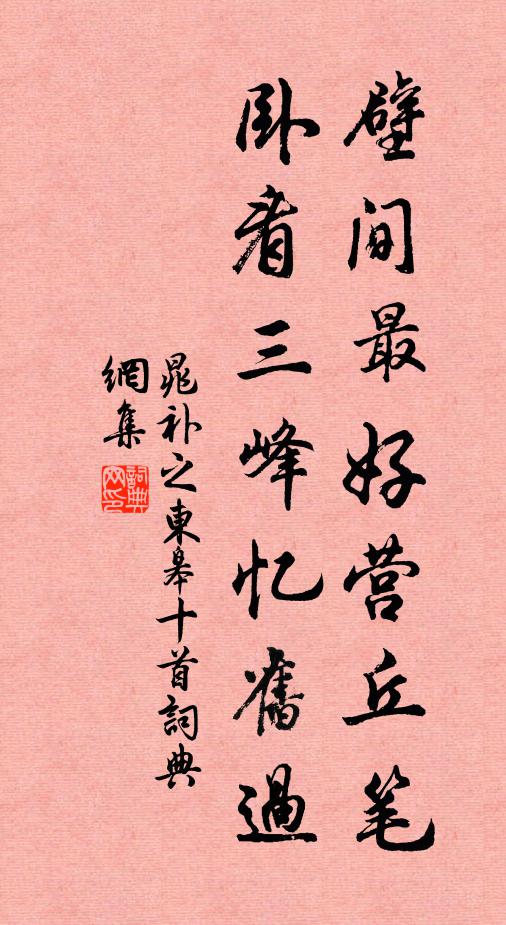 壁间最好营丘笔
卧看三峰忆舊過
晁补之東皋十首詞典
網集
詞典
网印